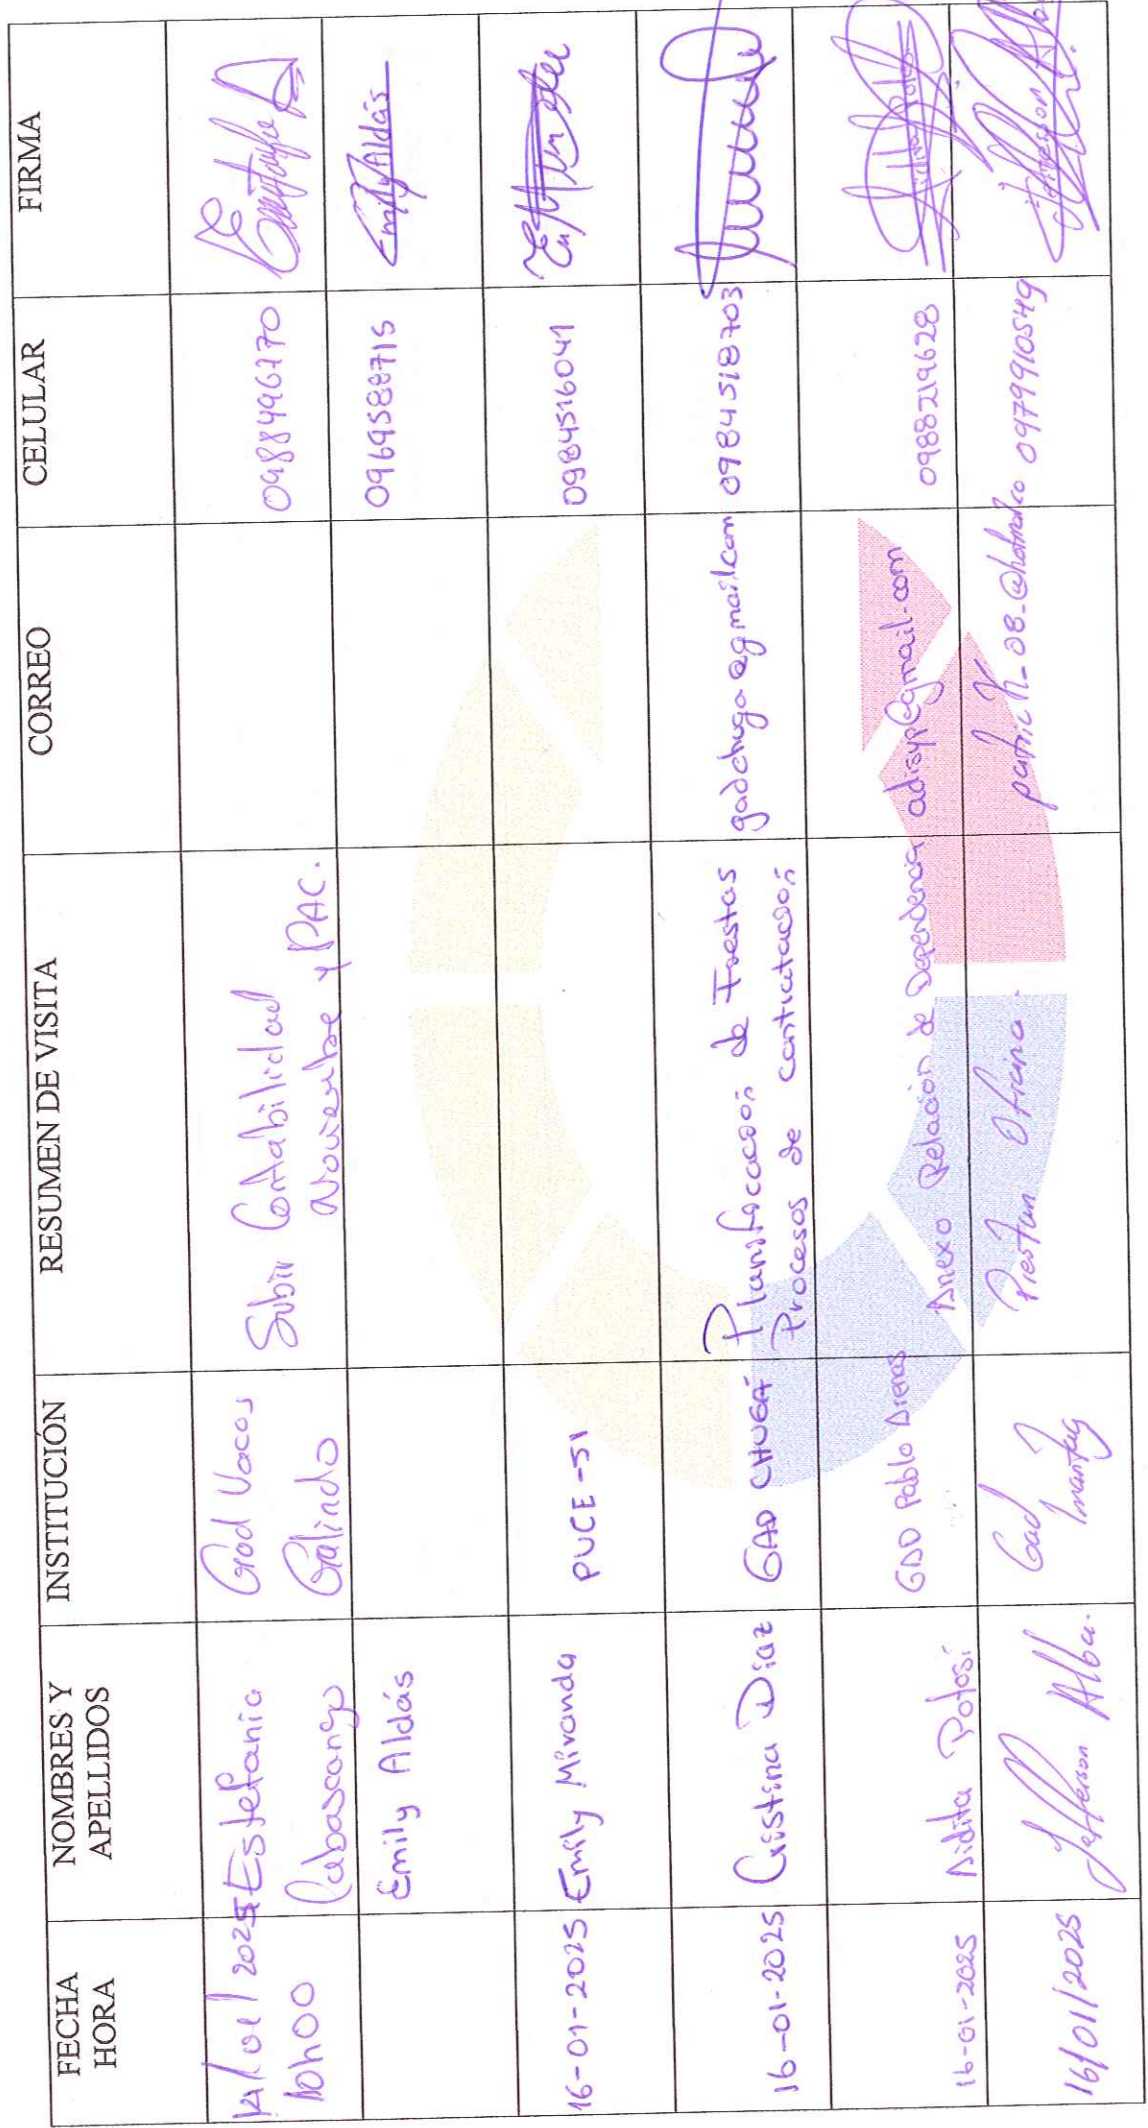 FECHA HORA
NOMBRES Y APELLIDOS
INSTITUCIÓN
RESUMEN DE VISITA
CORREO
CELULAR
FIRMA
14/01/2025
10h00
Estefania
Cabascango
Gad Vacas
Galindo
Subir Contabilidad
Noviembre y PAC.
0988496770
Emily Aldás
0969588715
Emily Aldás
16-01-2025
Emily Miranda
PUCE-SI
0984516041
16-01-2025
Cristina Díaz
GAD CHUGÁ
Planificación de Fiestas
Procesos de contratación
gadchuga@gmail.com
0984518703
16-01-2025
Aidita Potosí
GAD Pablo Arenas
Anexo Relación de Dependencia
adisyp@gmail.com
0988219628
16/01/2025
Jefferson Alba.
Gad
Imantag
Prestan Oficina.
0979910549